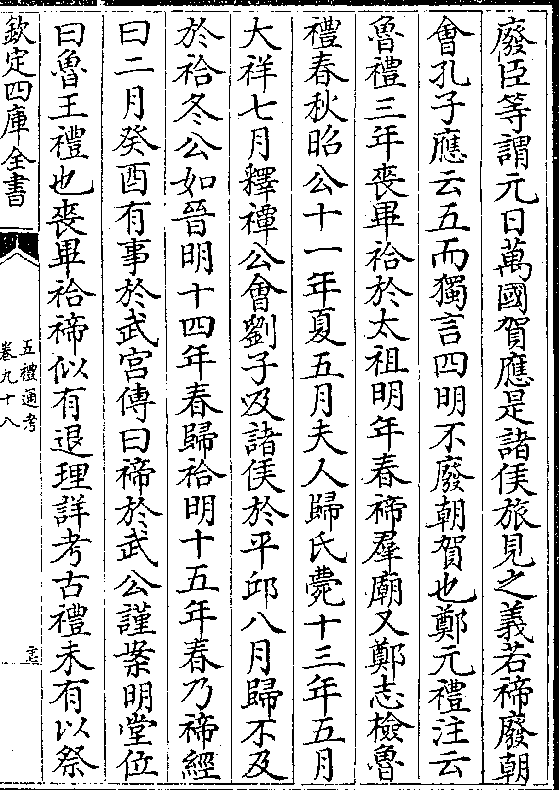 廢臣等謂元日萬國賀應是諸侯旅見之義若禘廢朝
會孔子應云五而獨言四明不廢朝賀也鄭元禮注云
魯禮三年喪畢祫於太祖明年春禘羣廟又鄭志檢魯
禮春秋昭公十一年夏五月夫人歸氏薨十三年五月
大祥七月釋禫公會劉子及諸侯於平邱八月歸不及
於祫冬公如晉明十四年春歸祫明十五年春乃禘經
曰二月癸酉有事於武宮傳曰禘於武公謹案明堂位
曰魯王禮也喪畢祫禘似有退理詳考古禮未有以祭
欽定四庫全書
五禮通考
卷九十八